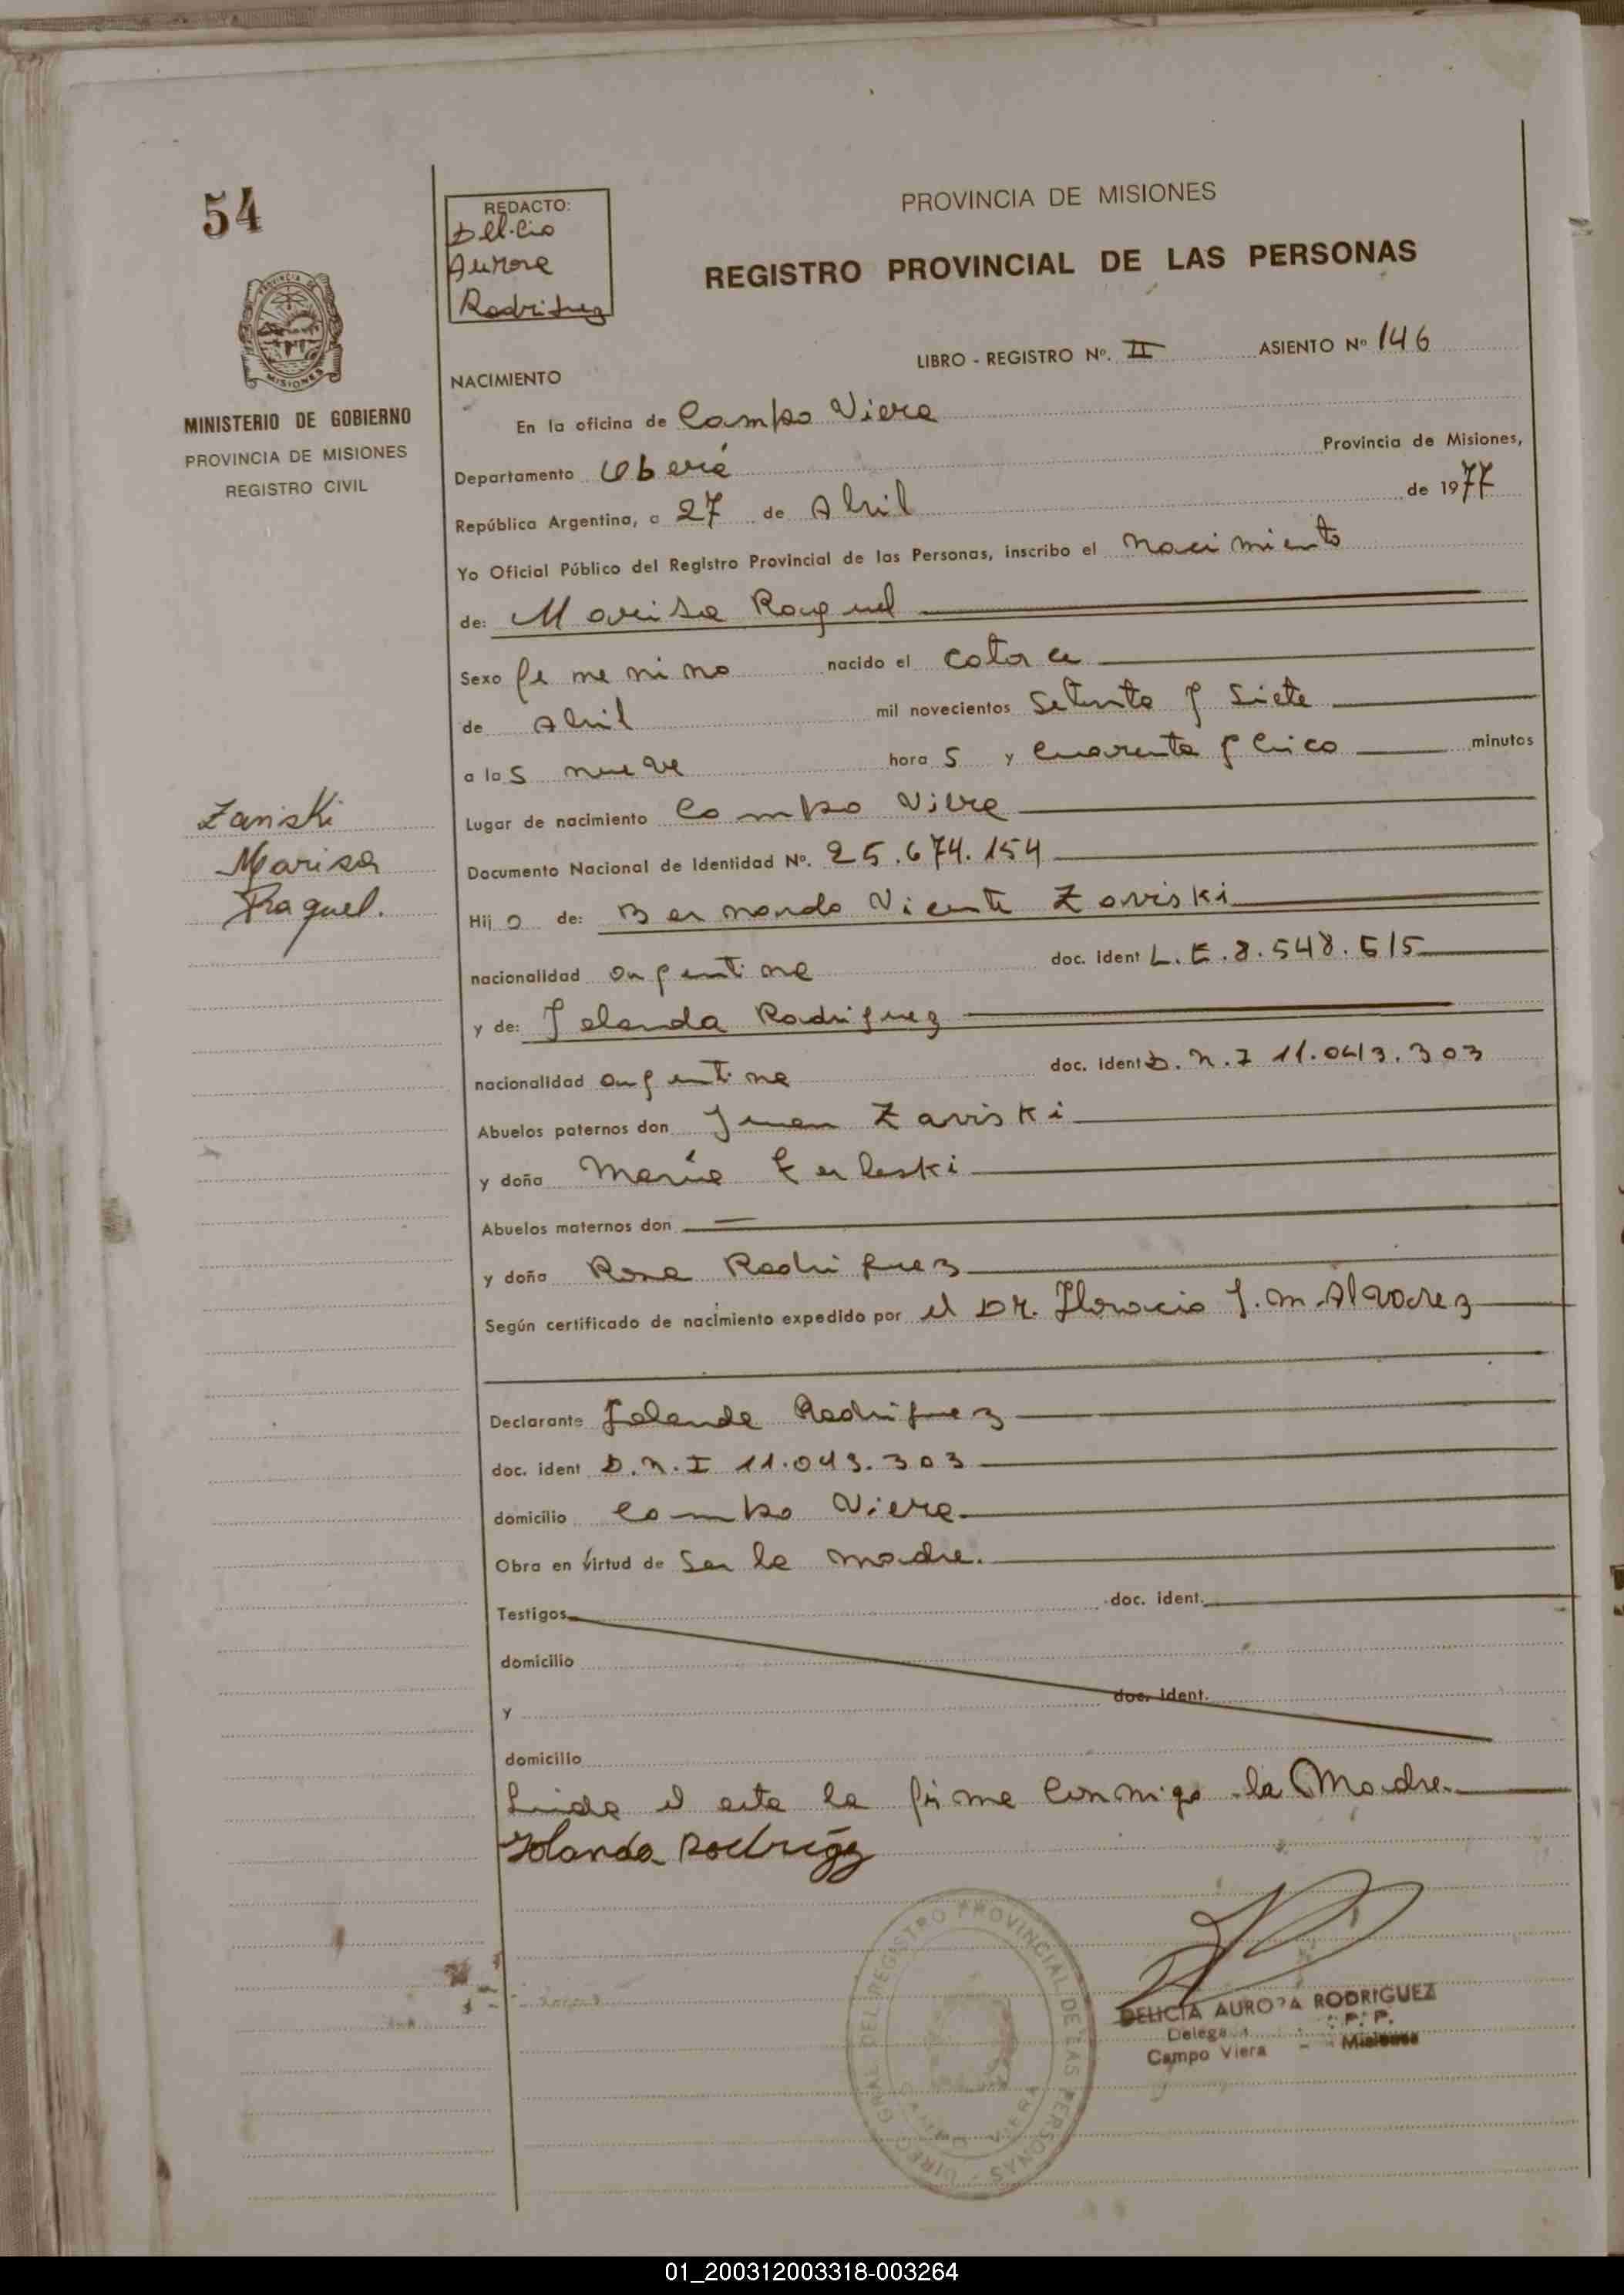 54
MINISTERIO DE GOBIERNO
PROVINCIA DE MISIONES
REGISTRO CIVIL
Zariski
Marisa
Raquel.
REDACTO:
Delicia
Aurora
Rodriguez
PROVINCIA DE MISIONES
REGISTRO PROVINCIAL DE LAS PERSONAS
LIBRO - REGISTRO Nº. II ASIENTO Nº 146
NACIMIENTO
En la oficina de Campo Viera
Departamento Oberá Provincia de Misiones,
República Argentina, a 27 de Abril de 1977
Yo Oficial Público del Registro Provincial de las Personas, inscribo el Nacimiento
de: Marisa Raquel
Sexo femenino nacido el catorce
de Abril mil novecientos Setenta y Siete
a las nueve horas y cuarenta y cinco minutos
Lugar de nacimiento Campo Viera
Documento Nacional de Identidad Nº. 25.674.154
Hijo de: Bernardo Vicente Zariski
nacionalidad argentina doc. ident L.E.8.548.515
y de: Yolanda Rodriguez
nacionalidad argentina doc. ident D.N.I 11.043.303
Abuelos paternos don Juan Zariski
y doña María
Abuelos maternos don —
y doña Rosa Rodriguez
Según certificado de nacimiento expedido por el DR. Horacio J. M. Alvarez
Declarante Yolanda Rodriguez
doc. ident D.N.I 11.043.303
domicilio Campo Viera
Obra en virtud de Ser la madre.
Testigos doc. ident.
domicilio
y doc. ident.
domicilio
Leida el acta la firma conmigo la Madre.
Yolanda Rodrigz
DIREC. GRAL DEL REGISTRO PROVINCIAL DE LAS PERSONAS
CAMPO VIERA
DELICIA AURORA RODRIGUEZ
Campo Viera - Misiones
01_200312003318-003264